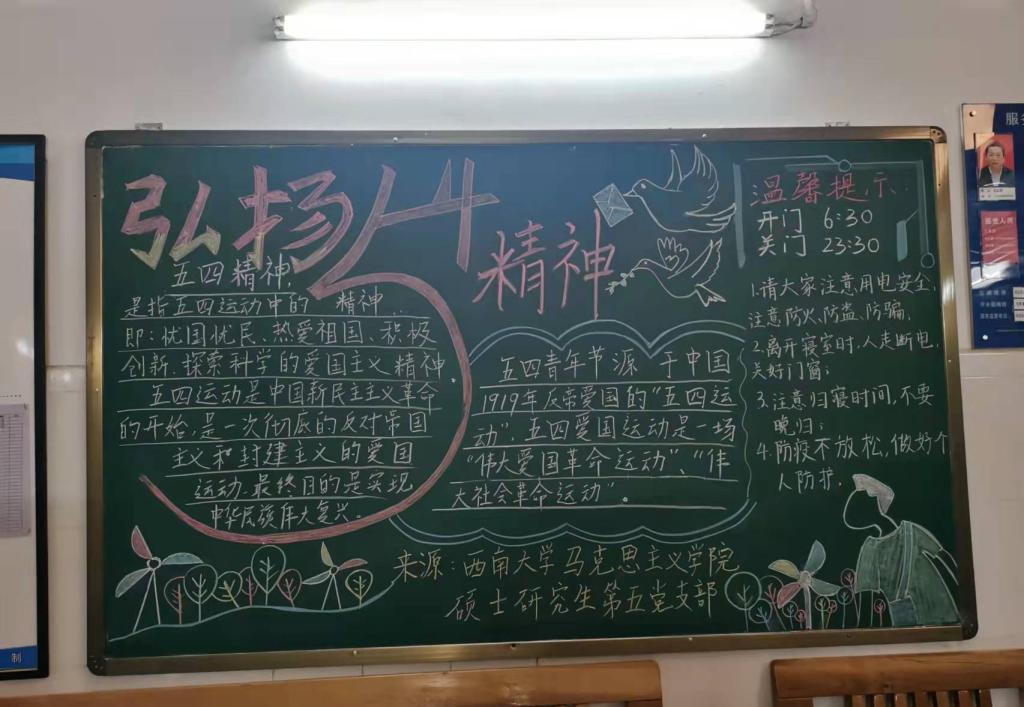 弘扬54精神
五四精神，
是指五四运动中的 精神，
即：忧国忧民、热爱祖国、积极
创新、探索科学的爱国主义精神。
五四运动是中国新民主主义革命
的开始，是一次彻底的反对帝国
主义和封建主义的爱国
运动，最终目的是实现
中华民族伟大复兴。
五四青年节源于中国
1919年反帝爱国的"五四运
动"，五四爱国运动是一场
"伟大爱国革命运动"、"伟
大社会革命运动"。
来源：西南大学马克思主义学院
硕士研究生第五党支部
温馨提示：
开门 6:30
关门 23:30
1.请大家注意用电安全，
注意防火、防盗、防骗；
2.离开寝室时，人走断电，
关好门窗；
3.注意归寝时间，不要
晚归；
4.防疫不放松，做好个
人防护。
服务
制